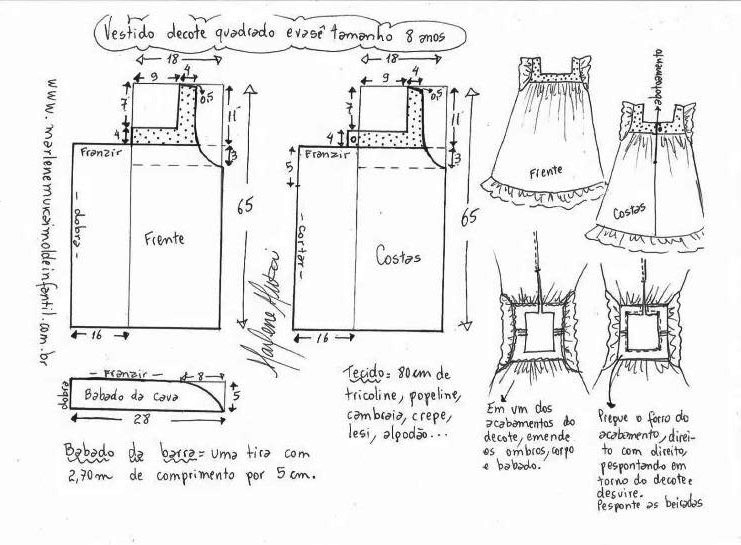 Vestido decote quadrado evasê tamanho 8 anos
www.marlenemukaimoldeinfantil.com.br
18
9
4
0,5
7
11
4
3
Franzir
- dobra -
Frente
65
16
Marlene Mukai
18
9
4
0,5
7
11
4
3
5
Franzir
- cortar -
Costas
65
16
Frente
abotoamento
Costas
- Franzir -
8
dobra
Babado da cava
5
28
Babado da barra = uma tira com
2,70m de comprimento por 5 cm.
Tecido = 80cm de
tricoline, popeline,
cambraia, crepe,
lesi, algodão...
Em um dos
acabamentos do
decote, emende
os ombros, corpo
e babado.
Pregue o forro do
acabamento, direi-
to com direito,
pespontando em
torno do decote e
desvire.
Pesponte as beiradas